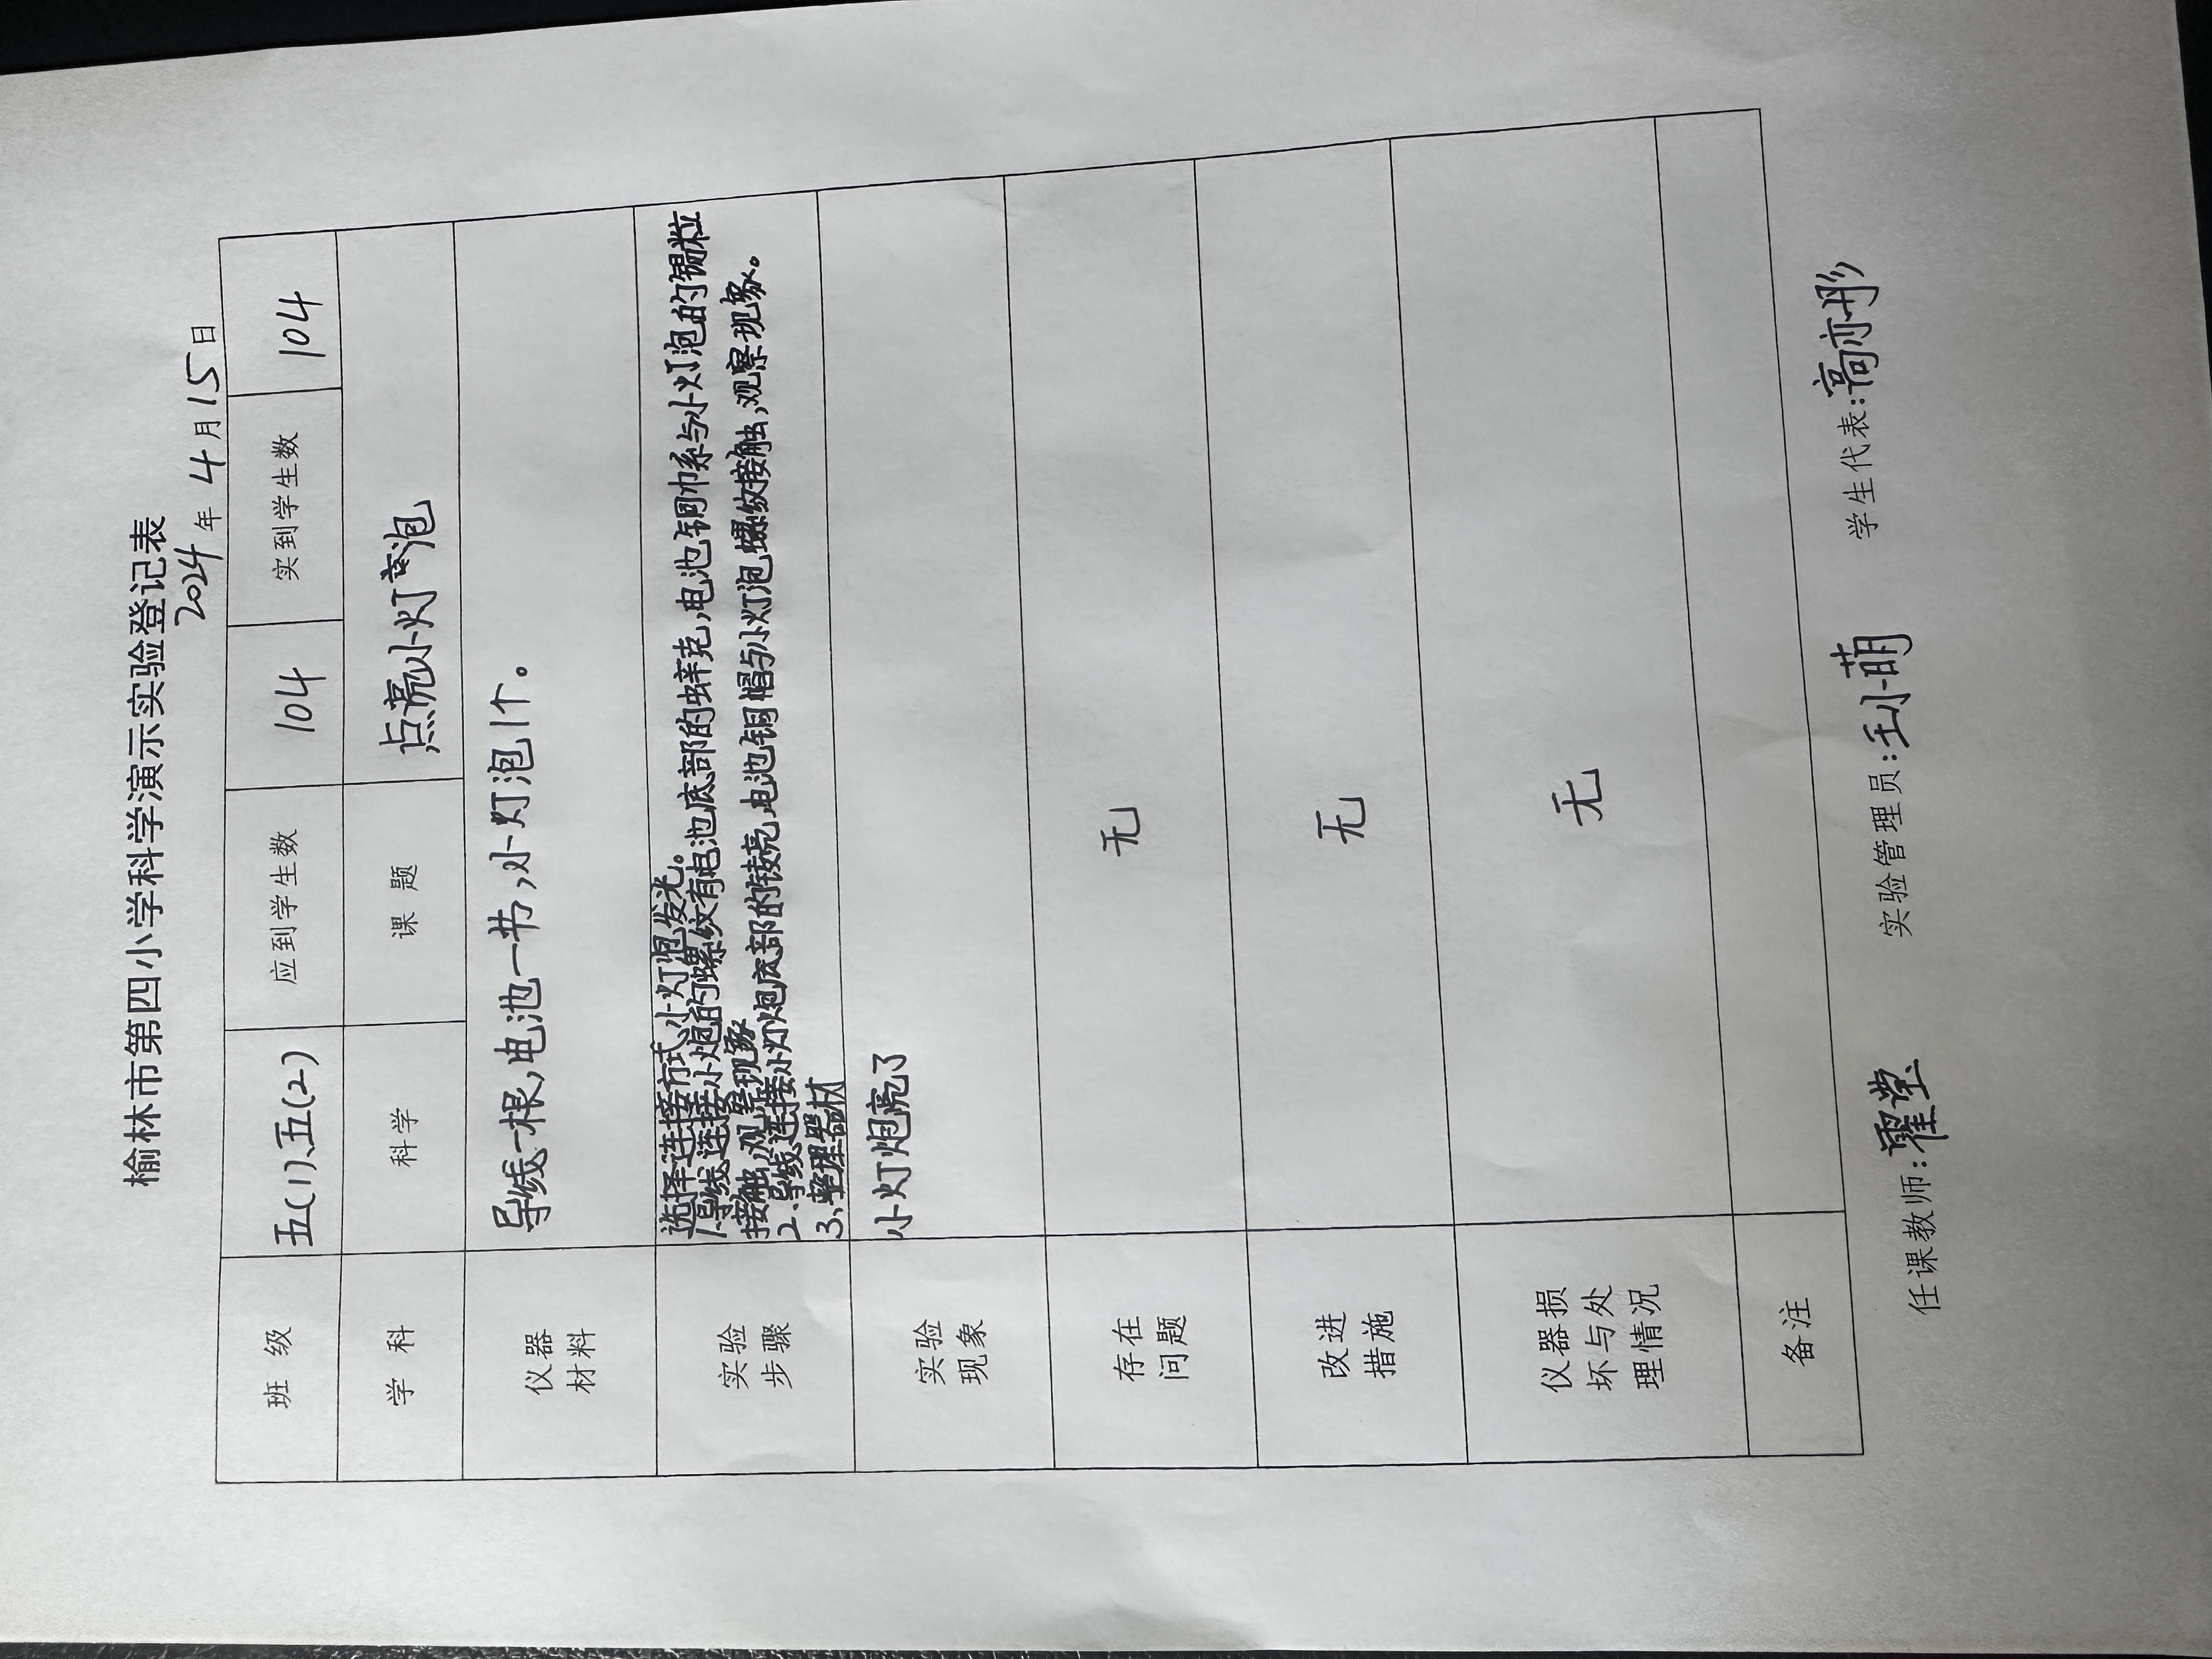 榆林市第四小学科学演示实验登记表
2024年4月15日
班 级 五(1)、五(2) 应到学生数 104 实到学生数 104
学 科 科学 课 题 点亮小灯泡
仪器材料 导线一根,电池一节,小灯泡1个。
实验步骤 选择连接方式,小灯炮发光。
1.导线连接小炮的螺纹有电池底部的锌壳,电池铜帽与小灯泡的锡粒
接触,观察现象
2.导线连接小灯炮底部的锌壳,电池铜帽与小灯泡螺纹接触,观察现象。
3.整理器材
实验现象 小灯炮亮了
存在问题 无
改进措施 无
仪器损坏与处理情况 无
备注
任课教师:霍莹 实验管理员:王小萌 学生代表:高亦彤